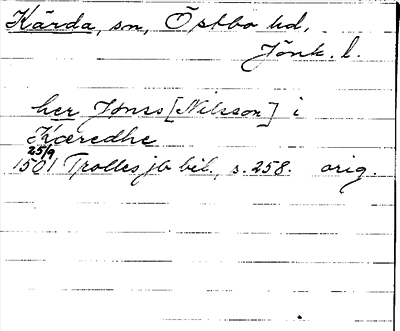 Kärda, sn, Östbo hd,
Jönk. l.
her Jønss [Nilsson] i
Kæredhe
25/9
1501 Trolles jb bil., s. 258. orig.